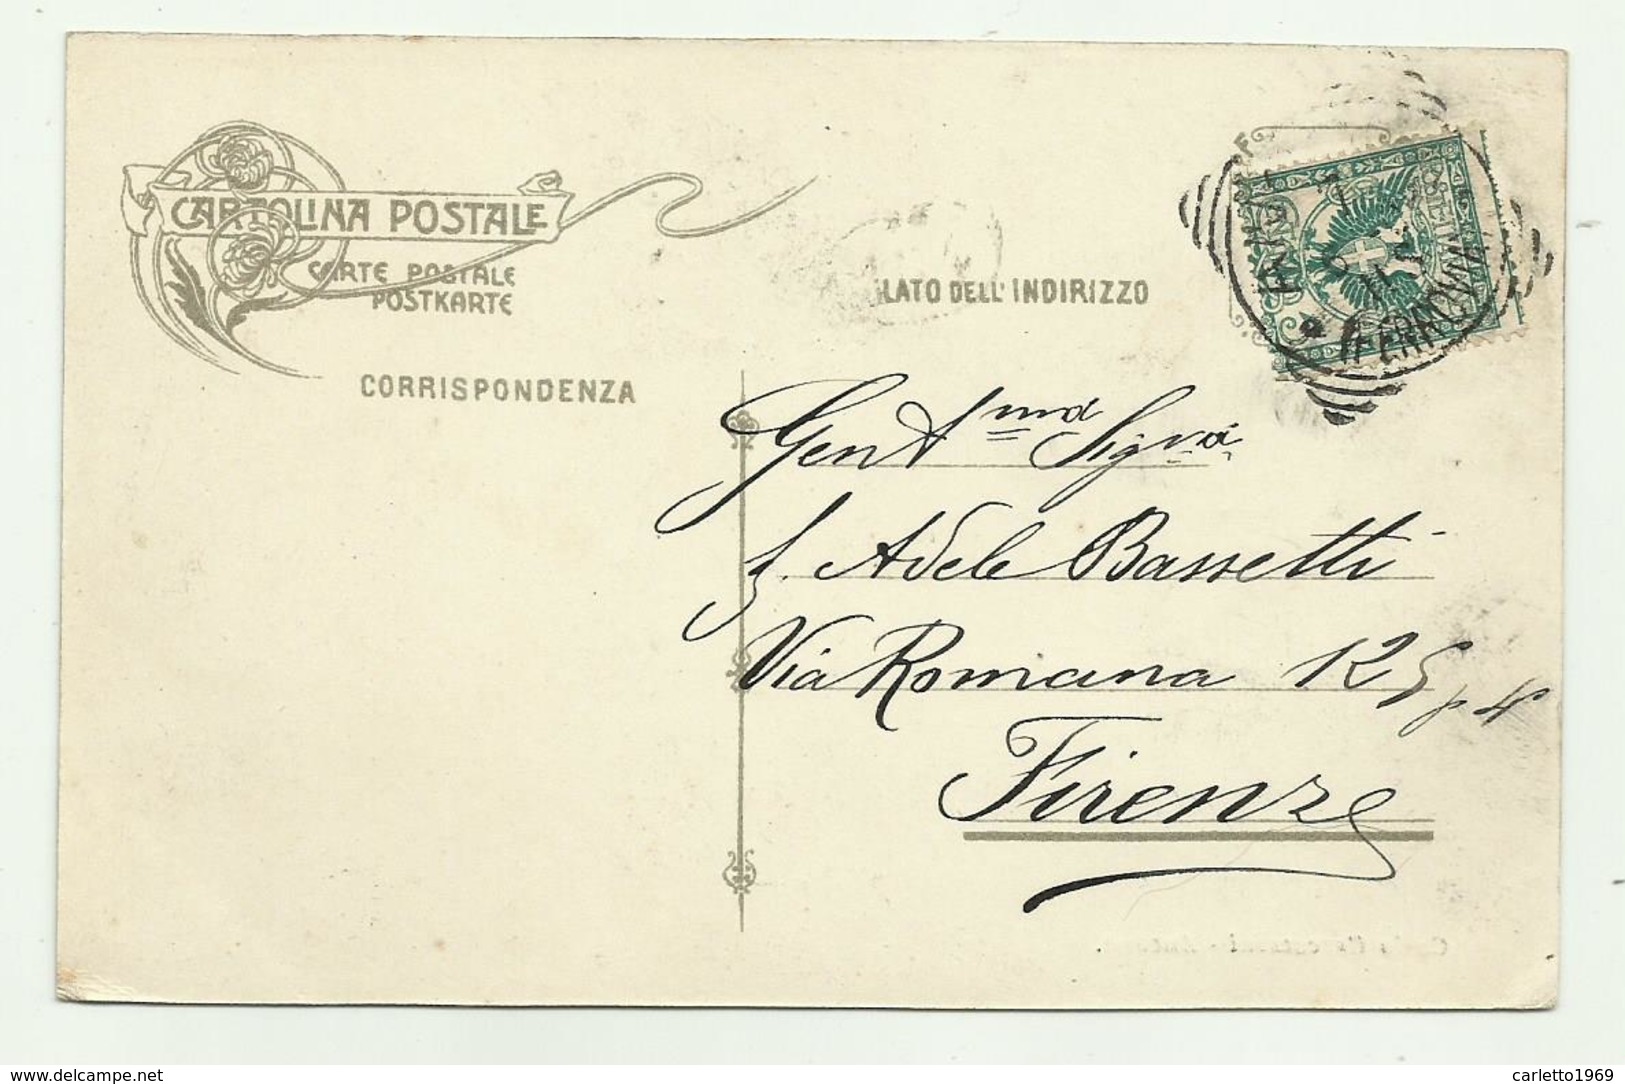 CARTOLINA POSTALE
CARTE POSTALE
POSTKARTE
LATO DELL'INDIRIZZO
CORRISPONDENZA
POSTE ITALIANE
(FERROVIA)
Gent.ma Sigra
Adele Bassetti
Via Romana 125 p 4
Firenze
www.delcampe.net
carletto1969